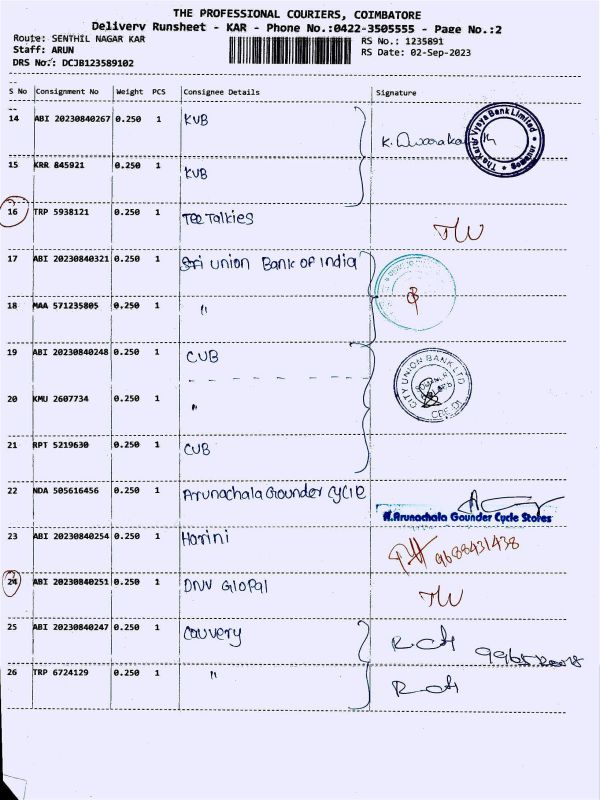 THE PROFESSIONAL COURIERS, COIMBATORE
Delivery Runsheet - KAR - Phone No.:0422-3505555 - Page No.:2
Route: SENTHIL NAGAR KAR
RS No.: 1235891
Staff: ARUN
RS Date: 02-Sep-2023
DRS No.: DCJB123589102
S No Consignment No Weight PCS Consignee Details Signature
14 ABI 20230840267 0.250 1 KVB
K. Dwaraka
The Karur Vysya Bank Limited
15 KRR 845921 0.250 1 KVB
16 TRP 5938121 0.250 1 Tee Talkies TW
17 ABI 20230840321 0.250 1 union Bank of India
18 MAA 571235805 0.250 1 "
19 ABI 20230840248 0.250 1 CUB
CITY UNION BANK LTD
20 KMU 2607734 0.250 1 "
21 RPT 5219630 0.250 1 CUB
22 NDA 505616456 0.250 1 Arunachala Gounder cycle
A.Arunachala Gounder Cycle Stores
23 ABI 20230840254 0.250 1 Harini 9688431438
24 ABI 20230840251 0.250 1 DNV Glopal TW
25 ABI 20230840247 0.250 1 Cauvery
26 TRP 6724129 0.250 1 "